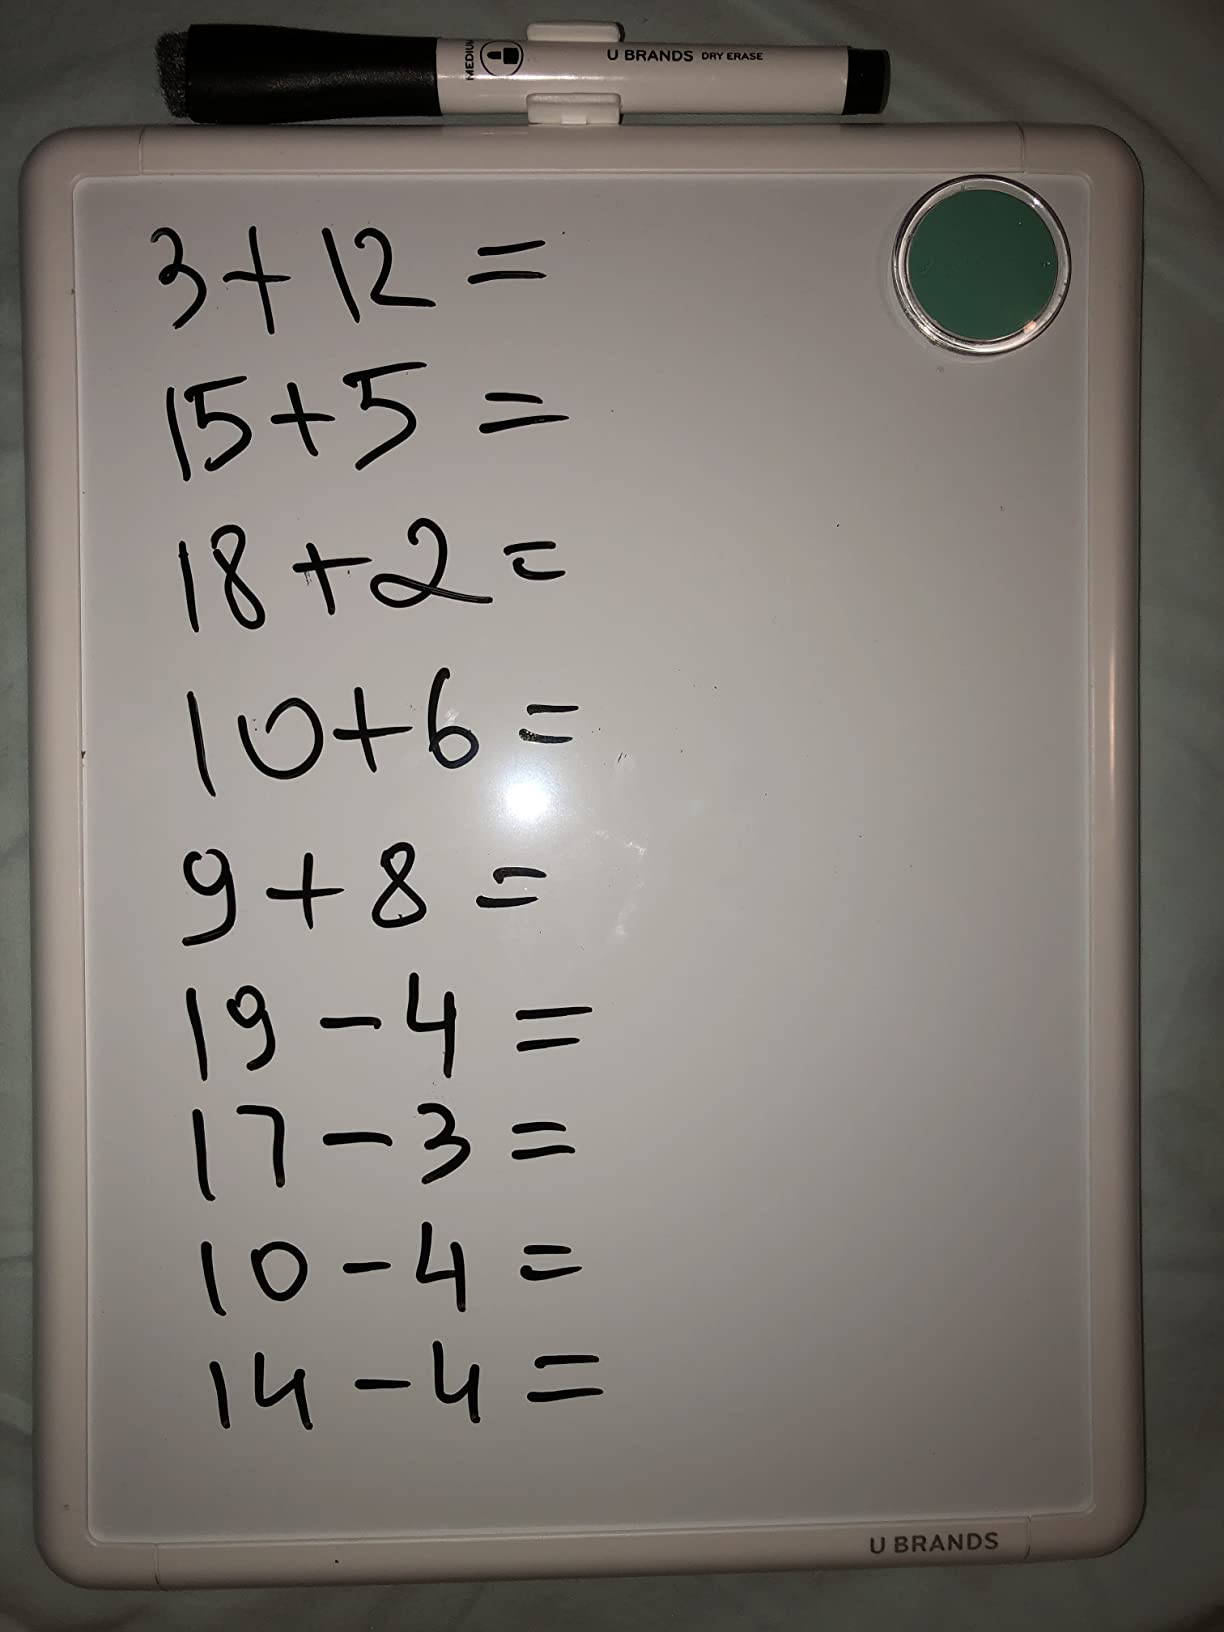 MEDIUM
U BRANDS DRY ERASE
3+12=
15+5=
18+2=
10+6=
9+8=
19-4=
17-3=
10-4=
14-4=
U BRANDS